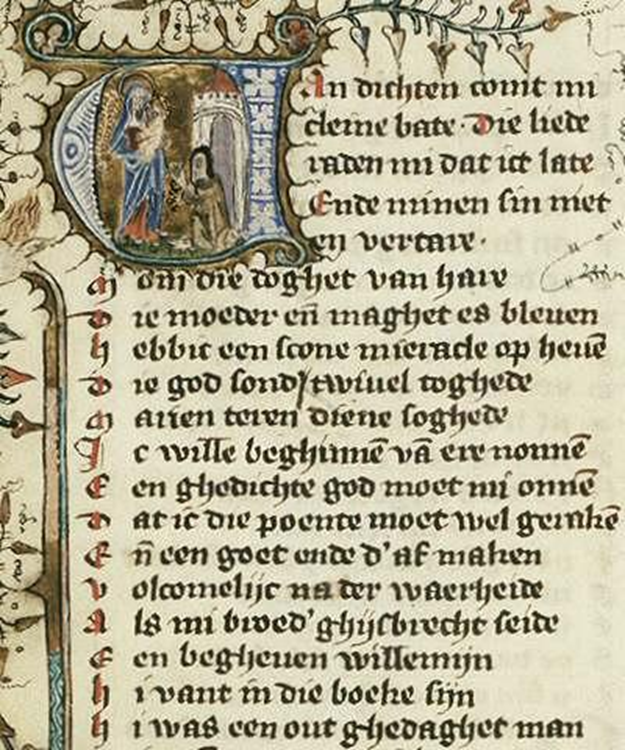 Van dichten comt mi
cleine bate. Die liede
raden mi dat ict late
Ende minen sin niet
en vertare.
M om die doghet van hare
D ie moeder en̄ maghet es bleuen
H ebbic een scone mieracle op heuē
D ie god sonder twiuel toghede
M arien teren diene soghede
I c wille beghinnē vā ere nonnē
E en ghedichte god moet mi onnē
D at ic die poente moet wel gerakē
E n̄ een goet ende d'af maken
V olcomelijc na der waerheide
A ls mi broed' ghijsbrecht seide
E en begheuen willemijn
H i vant in die boeke sijn
H i was een out ghedaghet man